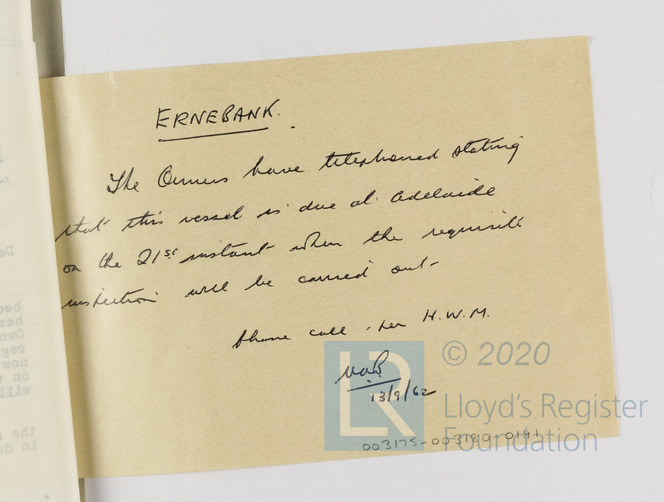 ERNEBANK.
The Owners have telephoned stating
that this vessel is due at Adelaide
on the 21st instant when the requisite
inspection will be carried out-
phone call . per H.W.M.
13/9/62
003175-003190-0141
LR
© 2020
Lloyd's Register
Foundation